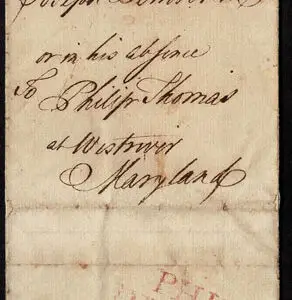 Joseph
or in his absence
To Philip Thomas
at Westriver
Maryland
PHI